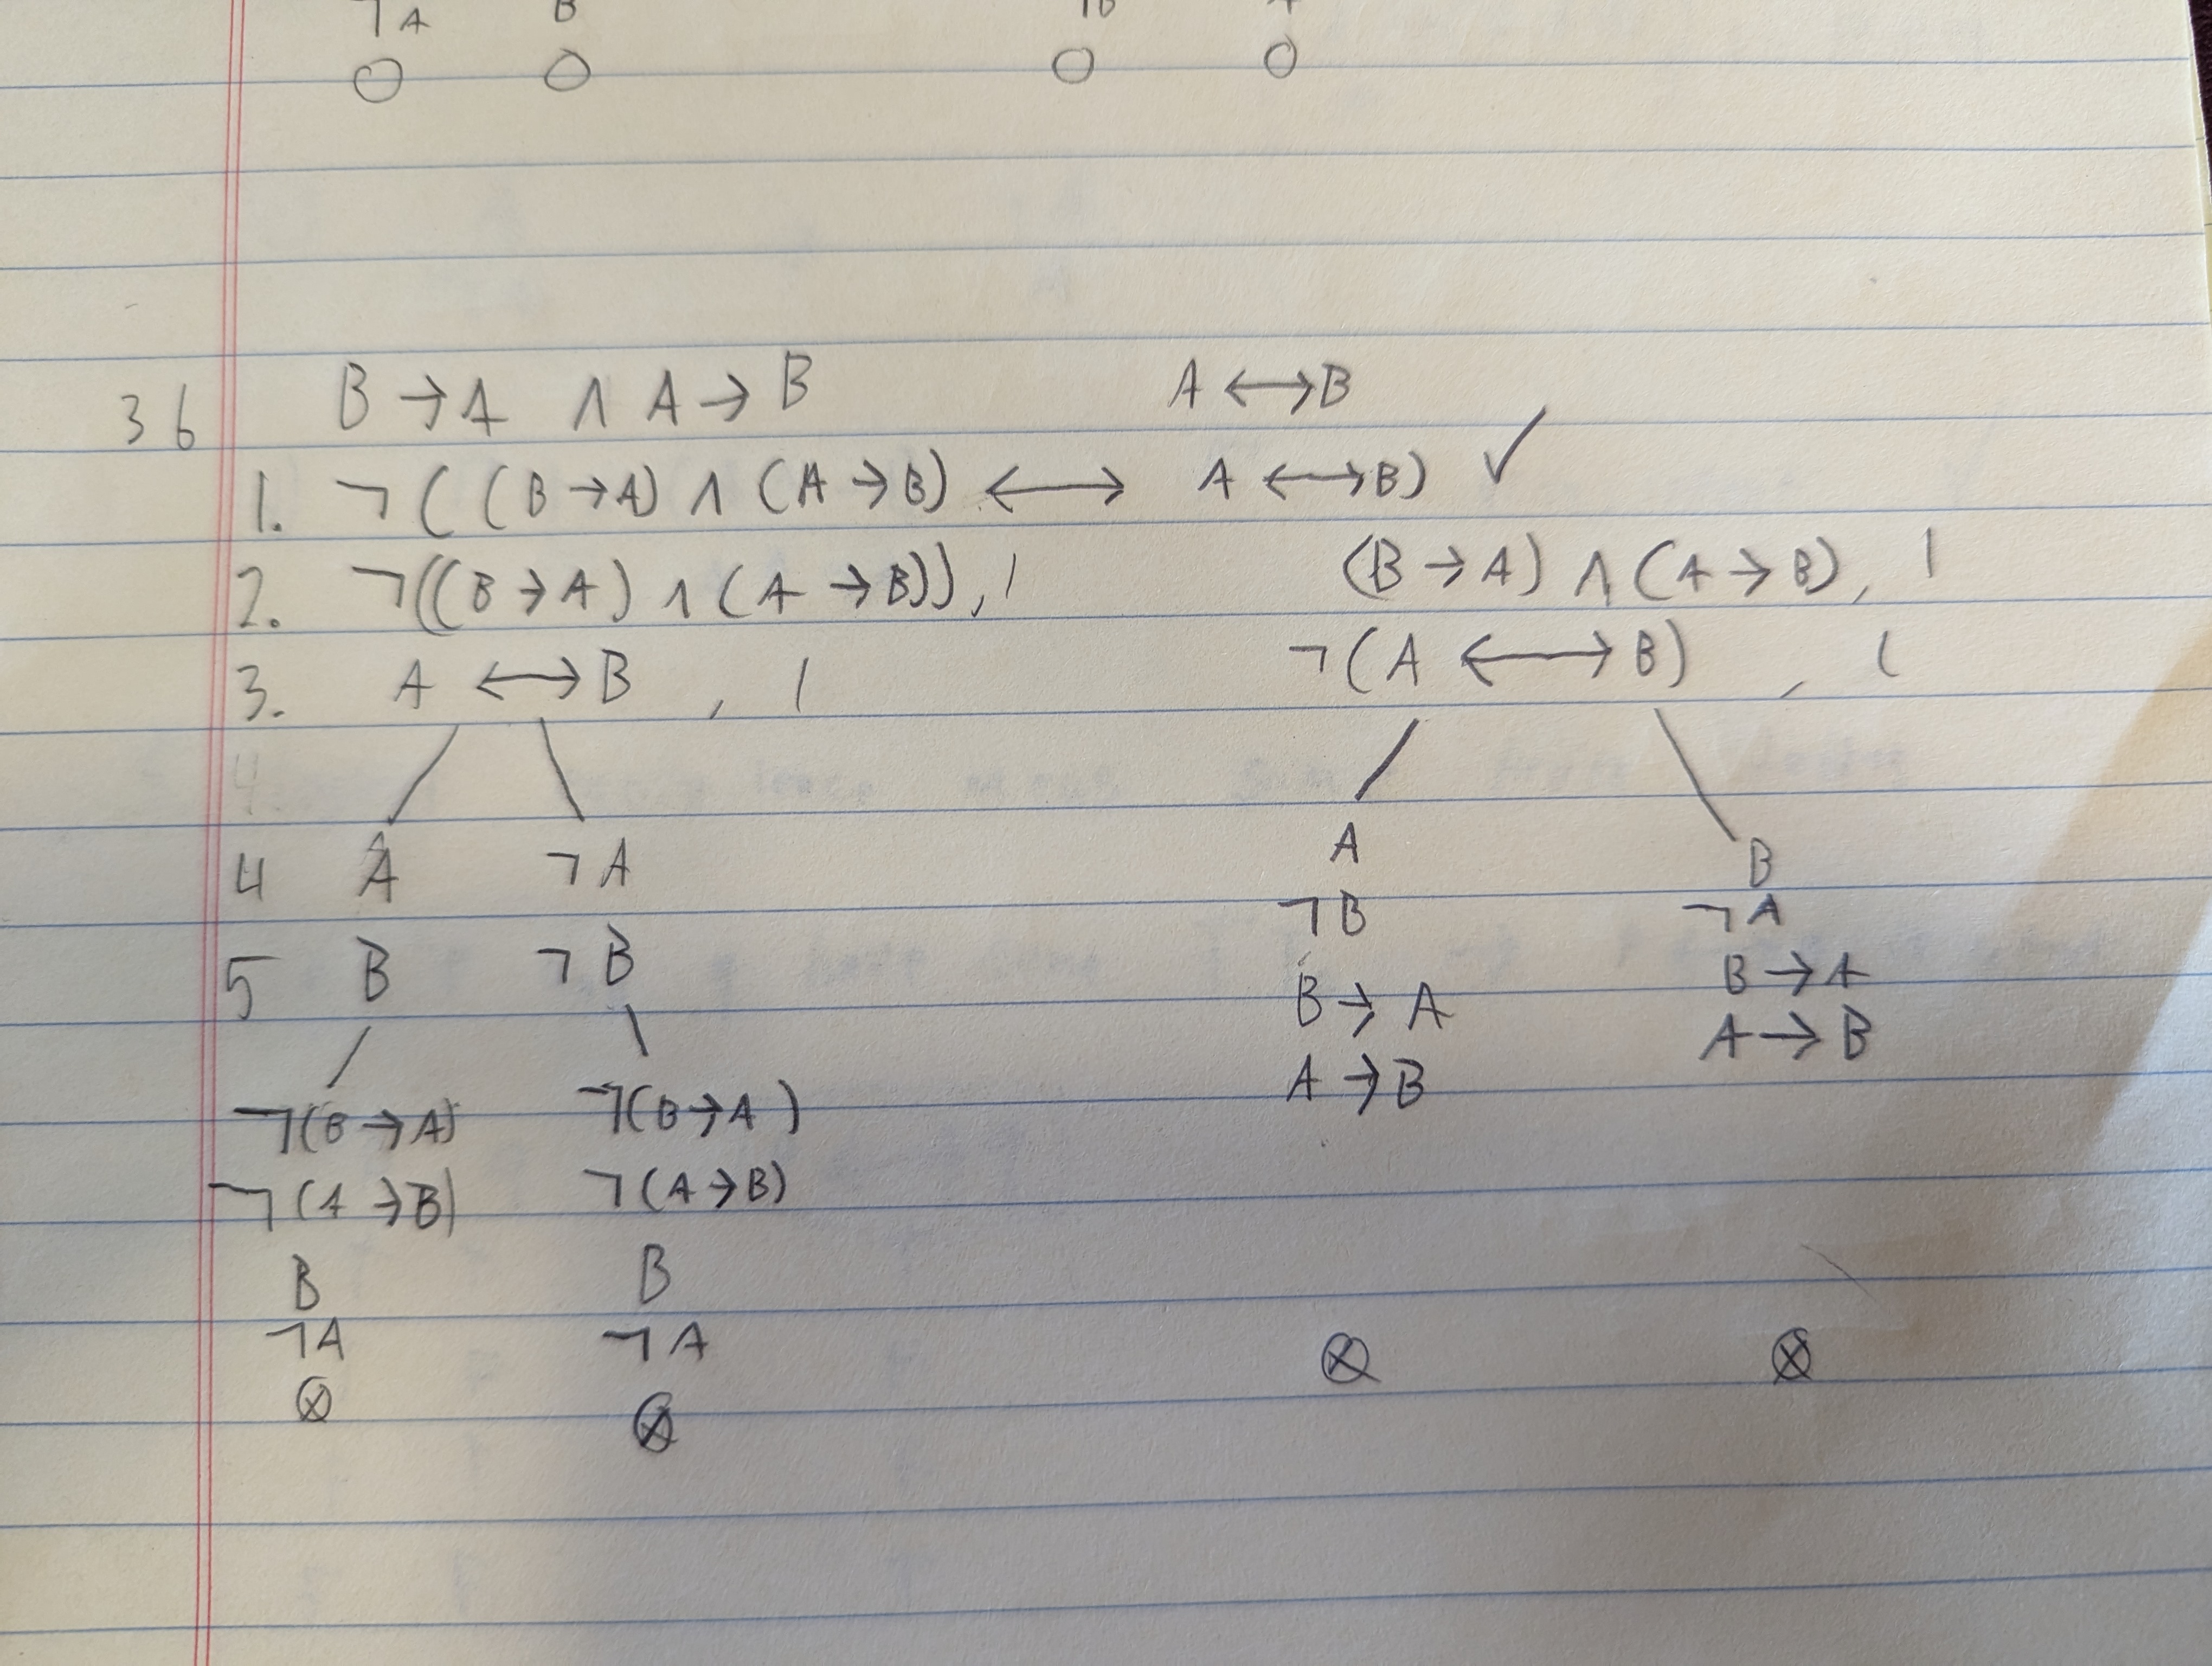 ¬A B ¬B A
O O O O
36 B → A ∧ A → B A ↔ B
1. ¬((B → A) ∧ (A → B) ↔ A ↔ B) ✓
2. ¬((B → A) ∧ (A → B)), 1 (B → A) ∧ (A → B), 1
3. A ↔ B , 1 ¬(A ↔ B) , 1
4 A ¬A A B
5 B ¬B ¬B ¬A
B → A B → A
A → B A → B
¬(B → A) ¬(B → A)
¬(A → B) ¬(A → B)
B B
¬A ¬A
⊗ ⊗ ⊗ ⊗